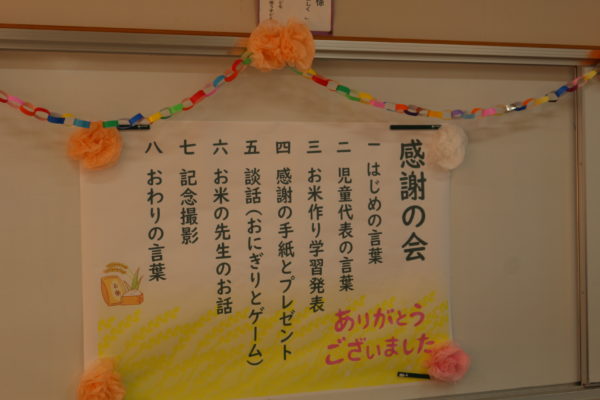 感謝の会
一 はじめの言葉
二 児童代表の言葉
三 お米作り学習発表
四 感謝の手紙とプレゼント
五 談話(おにぎりとゲーム)
六 お米の先生のお話
七 記念撮影
八 おわりの言葉
ありがとう
ございました